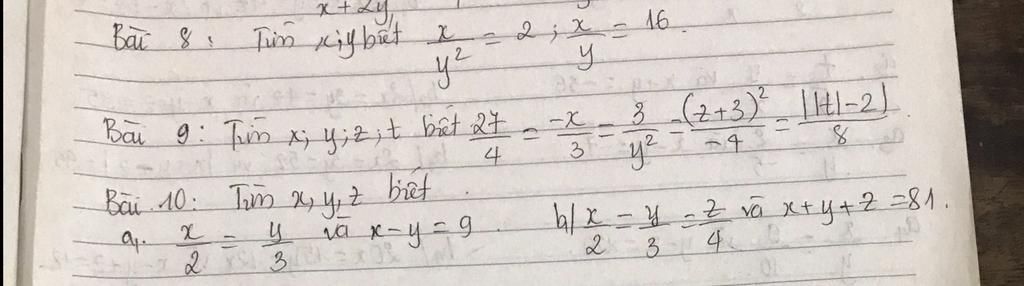 x + 2y
Bài 8 : Tìm x;y biết x/y² = 2 ; x/y = 16.
Bài 9 : Tìm x; y; z; t biết 27/4 = -x/3 = 3/y² = (z+3)²/-4 = ||t|-2|/8
Bài 10: Tìm x, y, z biết.
a, x/2 = y/3 và x-y = 9. b/ x/2 = y/3 = z/4 và x+y+z = 81.